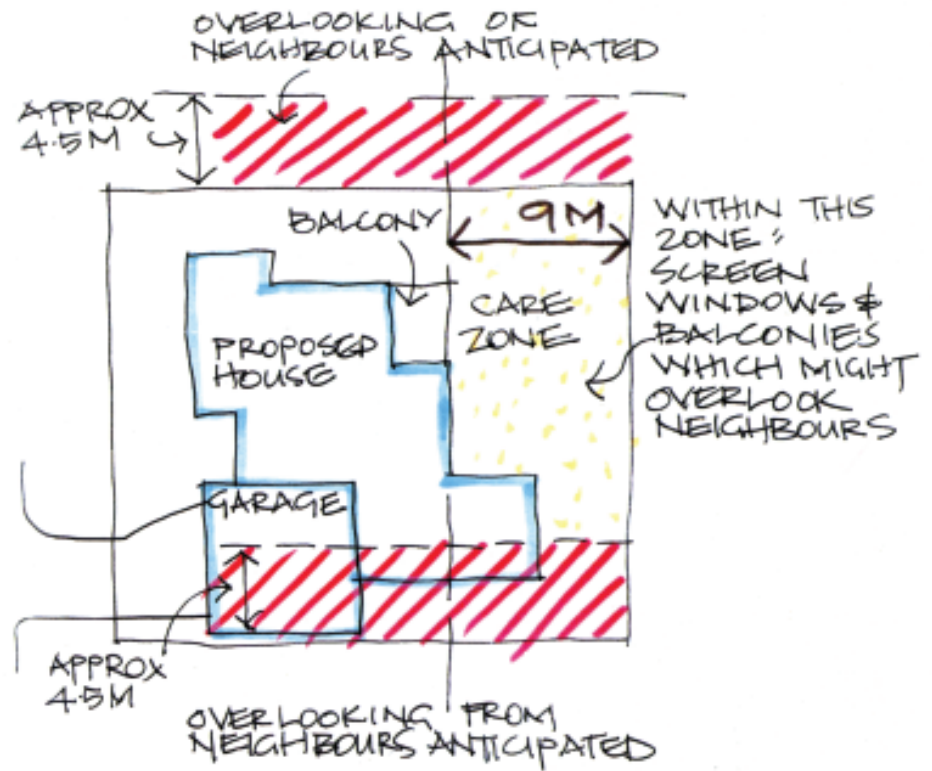 OVERLOOKING OF
NEIGHBOURS ANTICIPATED
APPROX
4.5M
BALCONY
9M
WITHIN THIS
ZONE:
SCREEN
WINDOWS &
BALCONIES
WHICH MIGHT
OVERLOOK
NEIGHBOURS
CARE
ZONE
PROPOSED
HOUSE
GARAGE
APPROX
4.5M
OVERLOOKING FROM
NEIGHBOURS ANTICIPATED